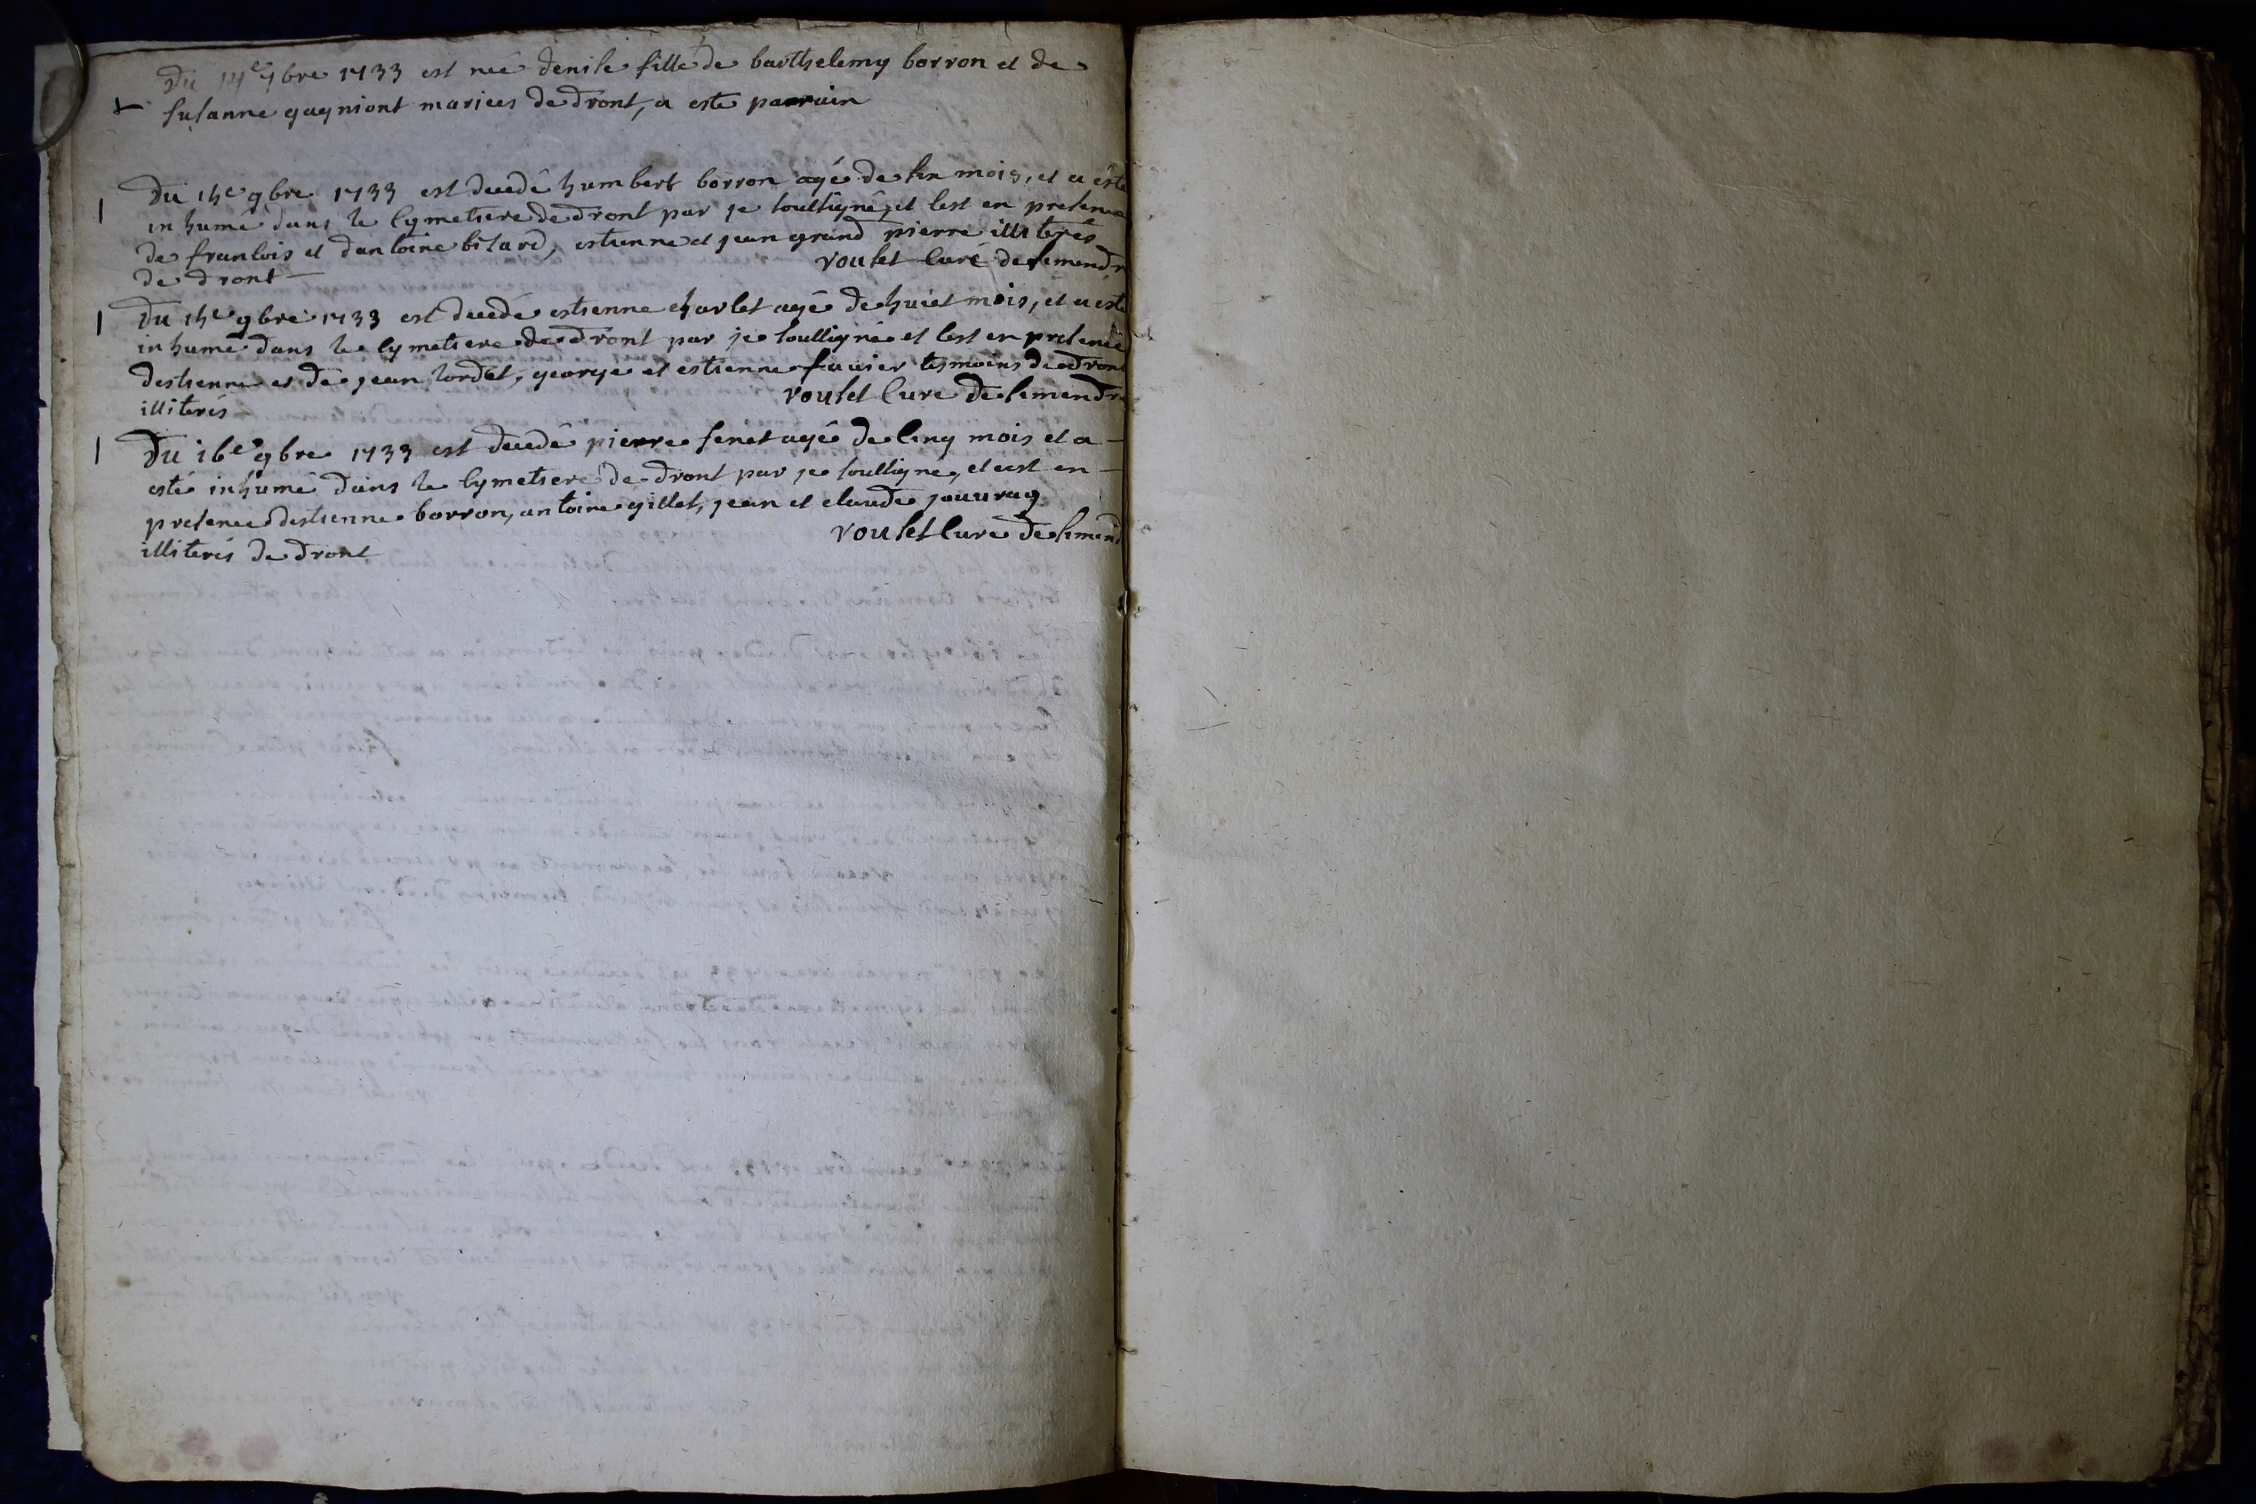 Du 14e 7bre 1733 est née denise fille de barthelemy borron et de
susanne gagniont mariees de dront, a esté parrain
Du 15e 9bre 1733 est decedé humbert borron agé de six mois, et a esté
inhumé dans le cymetiere de dront par je soussigné, et cest en presence
de francois et dantoine bitard, estienne et jean grand pierre illiterés
de dront
rouset curé de semondr
Du 15e 9bre 1733 est decedé estienne charlet agé de huict mois, et a esté
inhumé dans le cymetiere de dront par je soussigné et cest en presence
destienne et de jean tordet, george et estienne fauier tesmoins de dront
illiterés
rouset cure de semondr
Du 16e 9bre 1733 est decedé pierre senet agé de cinq mois et a
esté inhumé dans le cymetiere de dront par je soussigné, et cest en
presence destienne borron, antoine gillet, jean et claude jouuray
illiterés de dront
rouset cure de semond